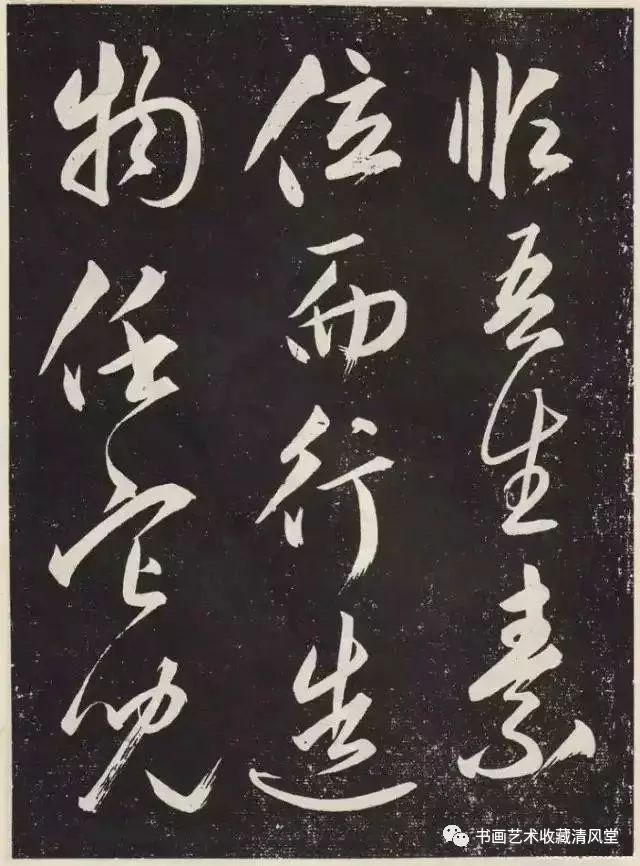 吾生素
位而行造
物任它兒
书画艺术收藏清风堂